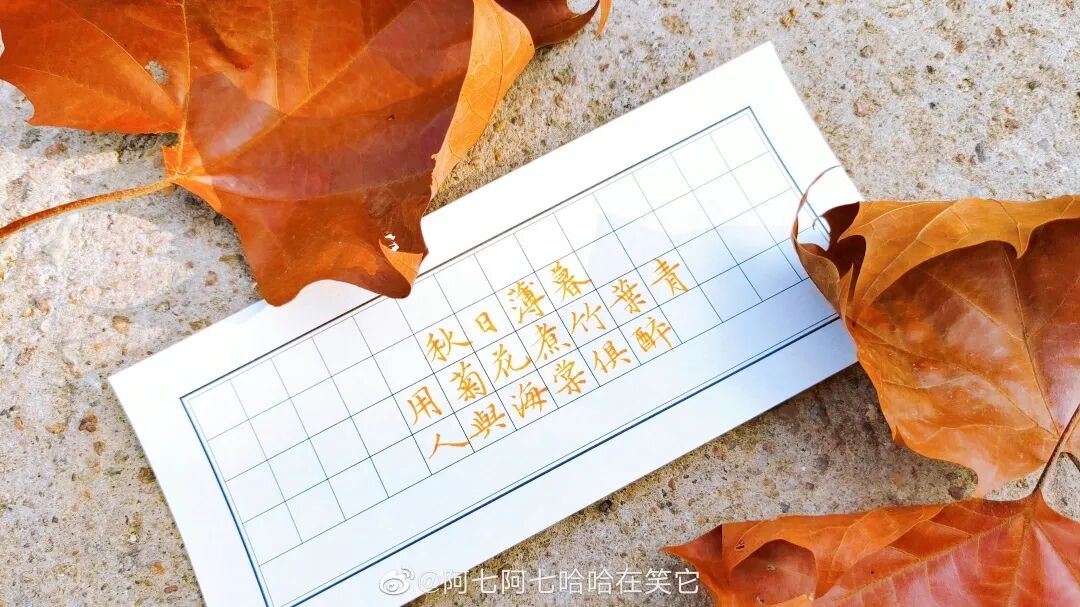 秋日薄暮
用菊花煮竹葉青
人與海棠俱醉
@阿七阿七哈哈在笑它